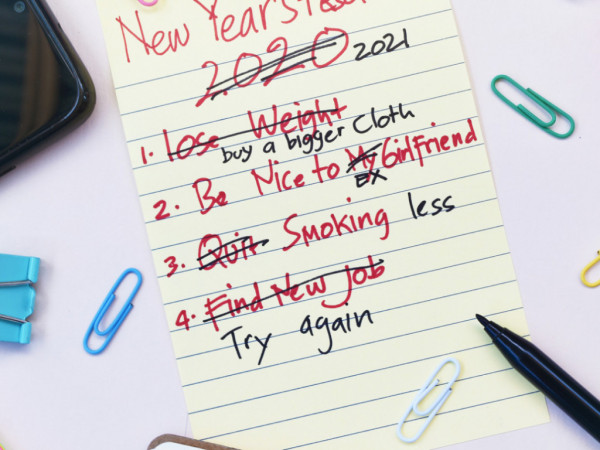 New Year's
2020 2021
1. Lose Weight
buy a bigger Cloth
2. Be Nice to My Girlfriend
EX
3. Quit Smoking less
4. Find New Job
Try again